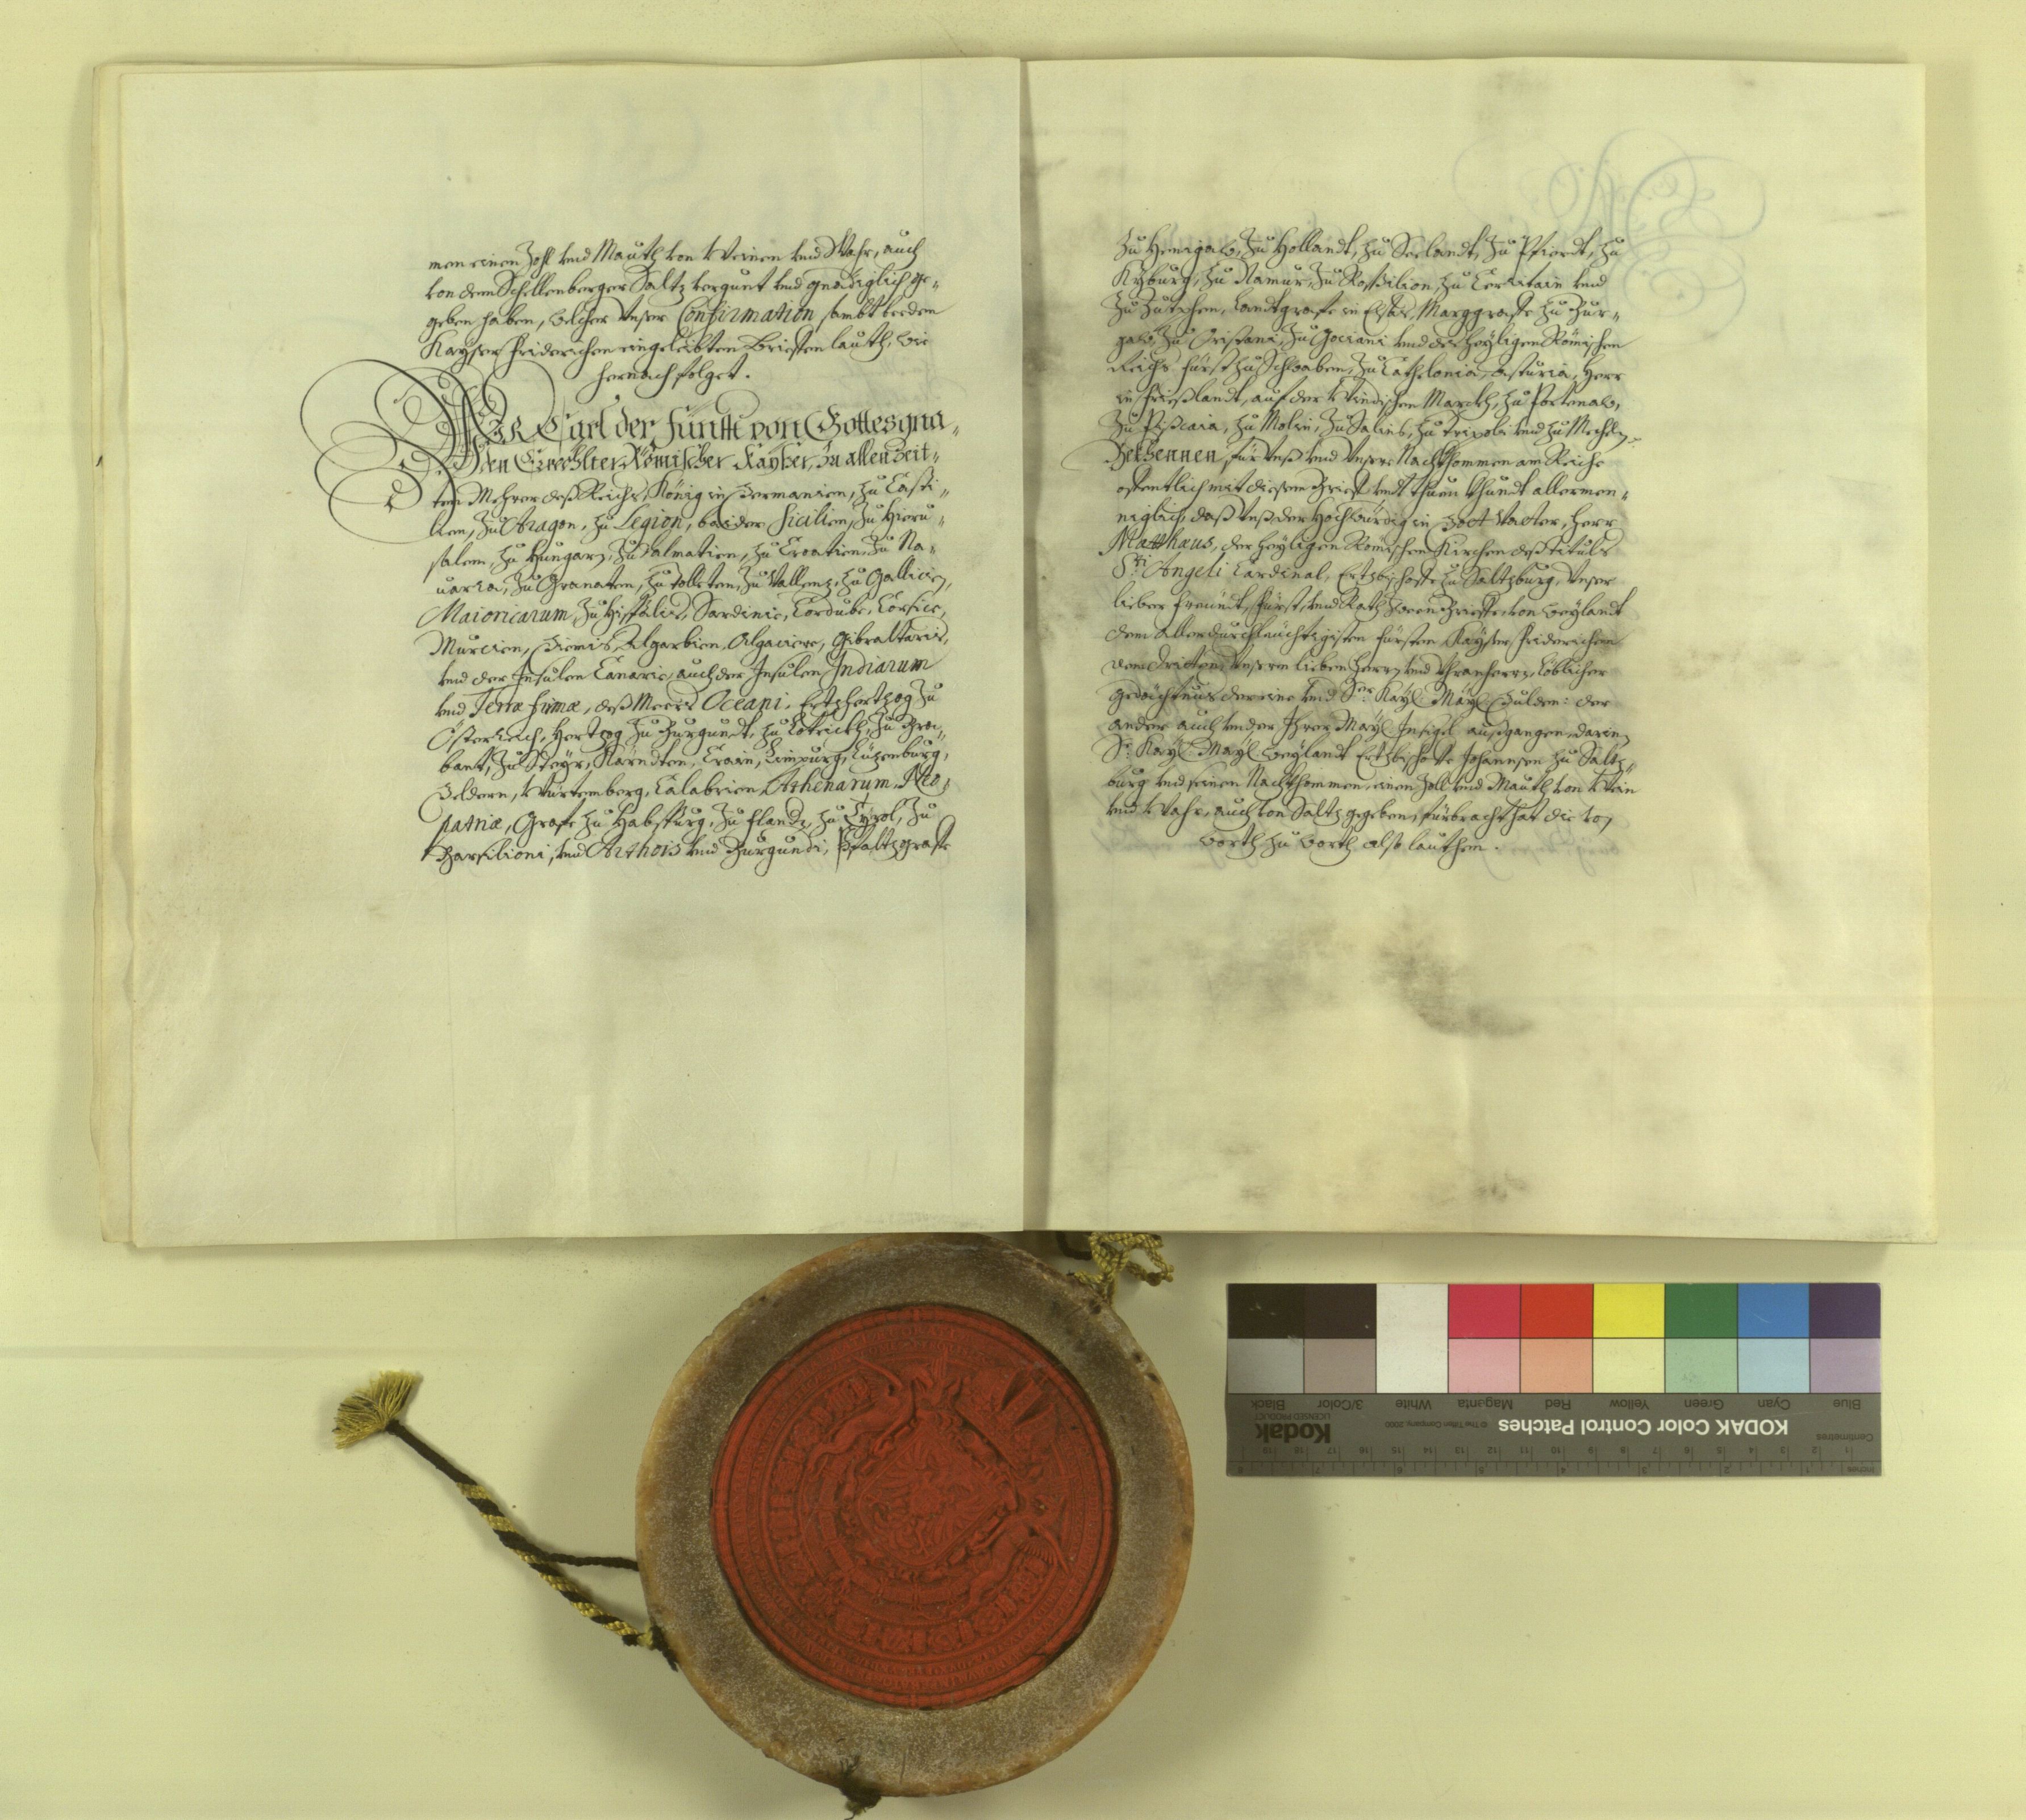 men einen Zohl vnd Mauth von Weinen vnd Wahr, auch
von dem Schellenberger Saltz vergunt vnd gnädiglich ge„
geben haben, welcher vnser Confirmation sambt beeden
Kayser Friderichen eingeleibten Brieffen lauth, wie
hernach folget.
WIR Carl der Fünfft von Gottes gna„
den Erwehlter Römischer Kayser, zu allen Zeit„
ten Mehrer deß Reichs, König in Germanien, zu Casti„
lien, zu Aragon, zu Legion, baider Sicilien, zu Hieru„
salem, zu Hungarn, zu Dalmatien, zu Croatien, zu Na„
uaria, zu Granaten, zu Tolleten, zu Vallenz, zu Gallicien,
Maioricarum, zu Hispalis, Sardinie, Cordube, Corsice,
Murcien, Giennis, Algarbien, Algaciere, Gibraltaris,
vnd der Insulen Canarie, auch der Insulen Indiarum
vnd Terræ firmæ, deß Meers Oceani, Ertzhertzog zu
Österreich, Hertzog zu Burgundt, zu Lottrickh, zu Bra„
bant, zu Steyr, Kärndten, Crain, Limpurg, Lüzenburg,
Geldern, Würtemberg, Calabrien, Athenarum, Neo„
patriæ, Grafe zu Habspurg, zu Fland, zu Tyrol, zu
Barsilioni, vnd Arthois vnd Burgundi, Pfaltzgraffe
zu Henigaw, zu Hollandt, zu Seelandt, zu Pfierdt, zu
Kyburg, zu Namur, zu Rossilion, zu Cerritain vnd
zu Zutphen, Landtgrafe in Elsas, Marggraffe zu Bur„
gaw, zu Oristani, zu Gociani vnd deß heyligen Römischen
Reichs Fürst zu Schwaben, zu Cathelonia, Asturia, Herr
in Frießlandt, auf der Windischen Marckh, zu Portenaw,
zu Piscaia, zu Molin, zu Salins, zu Tripoli vnd zu Mecheln.
Bekhennen, für vnß vnd vnsere Nachkhommen am Reiche
offentlich mit diesem Brieff, vnd thuen khundt allermen„
niglich, daß vnß der Hochwürdig in Gott Vatter, Herr
Matthæus, der heyligen Römischen Kirchen deß tituls
S:ti Angeli Cardinal, Ertzbischoffe zu Saltzburg, vnser
lieber Freundt, Fürst, vnd Rath zween Brieffe, von weylandt
dem allerdurchleüchtigisten Fürsten Kayser Friderichen
dem dritten, vnserm lieben Herrn vnd Vhranherrn, löblicher
gedächtnus der eine vnd S:er Kay: May: Gulden: der
ander auch vnder Ihrer May: Insigel außgangen, darin
Sr: Kay: May: weylandt Ertzbischoffe Johannsen zu Saltz„
burg vnd seinen Nachkhommen, einen Zoll vnd Mauth von Wein
vnd Wahr, auch von Saltz gegeben, fürbracht hat die von
worth zu worth also lauthen.
KODAK Color Control Patches
© The Tiffen Company, 2000
Kodak
LICENSED PRODUCT
Blue Cyan Green Yellow Red Magenta White 3/Color Black
Centimetres
Inches